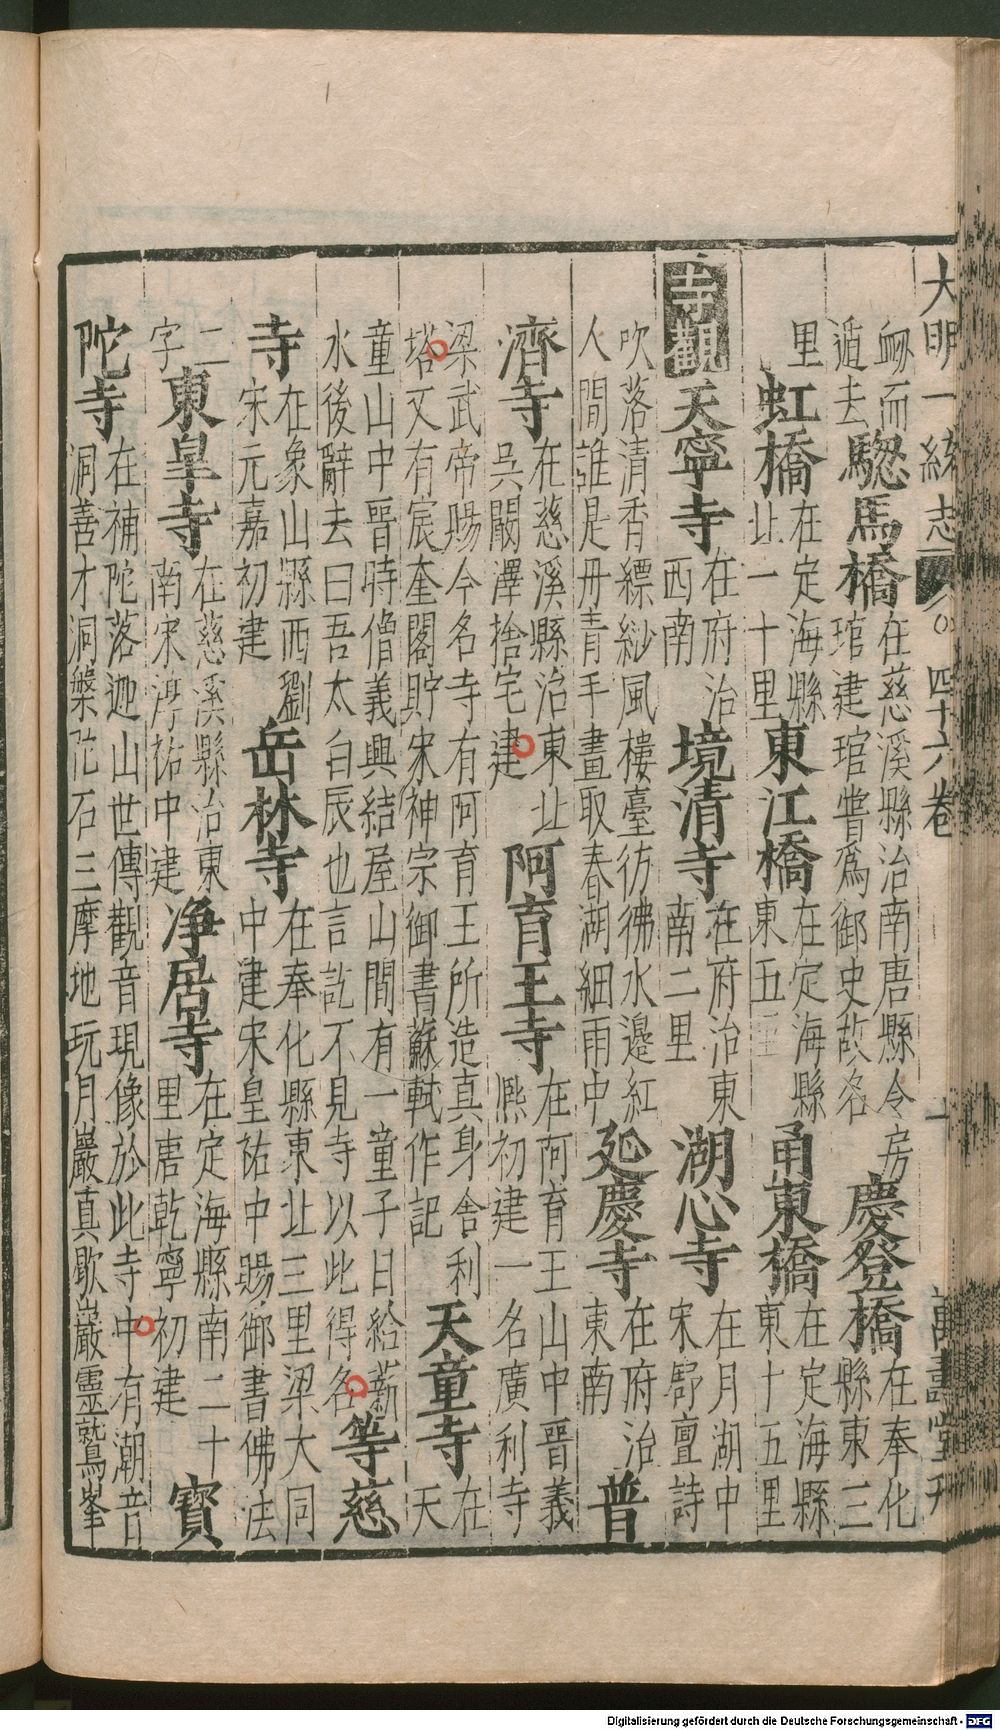 大明一統志 四十六卷 十 萬壽堂刊
衂而遁去驄馬橋在慈溪縣治南唐縣令房琯建琯嘗爲御史故名慶登橋在奉化縣東三
里虹橋在定海縣北一十里東江橋在定海縣東五里甬東橋在定海縣東十五里
寺觀天寧寺在府治西南境清寺在府治東南二里湖心寺在月湖中宋舒亶詩
吹落清香縹緲風樓臺彷彿水邊紅人間誰是丹青手畫取春湖細雨中延慶寺在府治東南普
濟寺在慈溪縣治東北吳闞澤捨宅建阿育王寺在阿育王山中晉義熈初建一名廣利寺
梁武帝賜今名寺有阿育王所造真身舍利塔又有宸奎閣貯宋神宗御書蘇軾作記天童寺在天
童山中晉時僧義興結屋山間有一童子日給薪水後辭去曰吾太白辰也言訖不見寺以此得名等慈
寺在象山縣西劉宋元嘉初建岳林寺在奉化縣東北三里梁大同中建宋皇祐中賜御書佛法
二字東皐寺在慈溪縣治東南宋淳祐中建净居寺在定海縣南二十里唐乾寧初建寶
陀寺在補陀落迦山世傳觀音現像於此寺中有潮音洞善才洞槃陀石三摩地玩月巖真歇巖靈鷲峯
Digitalisierung gefördert durch die Deutsche Forschungsgemeinschaft - DFG